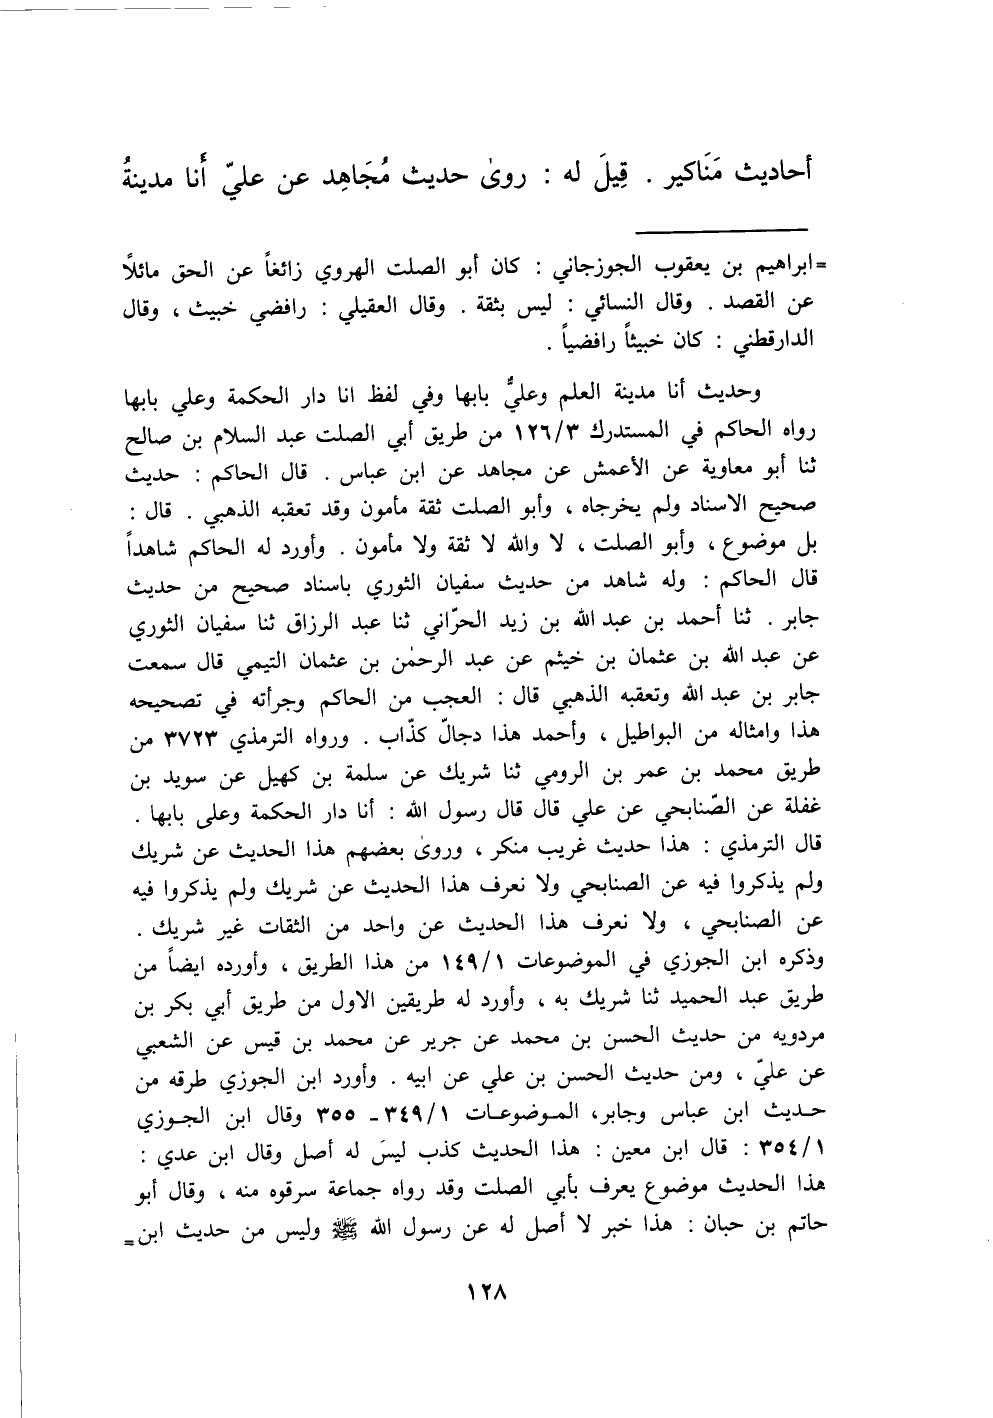 أحاديث مَنَاكير . قِيلَ له : روىٰ حديث مُجَاهِد عن عليّ أَنا مدينةُ
=ابراهيم بن يعقوب الجوزجاني : كان أبو الصلت الهروي زائغاً عن الحق مائلاً
عن القصد . وقال النسائي : ليس بثقة . وقال العقيلي : رافضي خبيث ، وقال
الدارقطني : كان خبيثاً رافضياً .
وحديث أنا مدينة العلم وعليٌّ بابها وفي لفظ انا دار الحكمة وعلي بابها
رواه الحاكم في المستدرك ١٢٦/٣ من طريق أبي الصلت عبد السلام بن صالح
ثنا أبو معاوية عن الأعمش عن مجاهد عن ابن عباس . قال الحاكم : حديث
صحيح الاسناد ولم يخرجاه ، وأبو الصلت ثقة مأمون وقد تعقبه الذهبي . قال :
بل موضوع ، وأبو الصلت ، لا والله لا ثقة ولا مأمون . وأورد له الحاكم شاهداً
قال الحاكم : وله شاهد من حديث سفيان الثوري باسناد صحيح من حديث
جابر . ثنا أحمد بن عبد الله بن زيد الحرّاني ثنا عبد الرزاق ثنا سفيان الثوري
عن عبد الله بن عثمان بن خيثم عن عبد الرحمٰن بن عثمان التيمي قال سمعت
جابر بن عبد الله وتعقبه الذهبي قال : العجب من الحاكم وجرأته في تصحيحه
هذا وامثاله من البواطيل ، وأحمد هذا دجالّ كذّاب . ورواه الترمذي ٣٧٢٣ من
طريق محمد بن عمر بن الرومي ثنا شريك عن سلمة بن كهيل عن سويد بن
غفلة عن الصّنابحي عن علي قال قال رسول الله : أنا دار الحكمة وعلى بابها .
قال الترمذي : هذا حديث غريب منكر ، وروىٰ بعضهم هذا الحديث عن شريك
ولم يذكروا فيه عن الصنابحي ولا نعرف هذا الحديث عن شريك ولم يذكروا فيه
عن الصنابحي ، ولا نعرف هذا الحديث عن واحد من الثقات غير شريك .
وذكره ابن الجوزي في الموضوعات ١٤٩/١ من هذا الطريق ، وأورده ايضاً من
طريق عبد الحميد ثنا شريك به ، وأورد له طريقين الاول من طريق أبي بكر بن
مردويه من حديث الحسن بن محمد عن جرير عن محمد بن قيس عن الشعبي
عن عليّ ، ومن حديث الحسن بن علي عن ابيه . وأورد ابن الجوزي طرقه من
حديث ابن عباس وجابر، الموضوعات ٣٤٩/١- ٣٥٥ وقال ابن الجوزي
٣٥٤/١ : قال ابن معين : هذا الحديث كذب ليسَ له أصل وقال ابن عدي :
هذا الحديث موضوع يعرف بأبي الصلت وقد رواه جماعة سرقوه منه ، وقال أبو
حاتم بن حبان : هذا خبر لا أصل له عن رسول الله ﷺ وليس من حديث ابن=
١٢٨